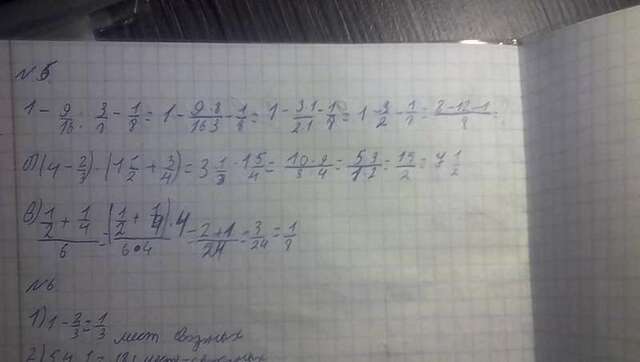 №5.
1 - 9/16 · 3/8 - 1/8 = 1 - 9·8/16·3 - 1/8 = 1 - 3·1/2·1 - 1/8 = 1 - 3/2 - 1/8 = 8-12-1/8
б) (4 - 2/3) · (1 1/2 + 3/4) = 3 1/3 · 1 5/4 = 10·9/3·4 = 5·3/1·2 = 15/2 = 7 1/2
в) 1/2 + 1/4 / 6 = (1/2 + 1/4)·4 / 6·4 = 2+1/24 = 3/24 = 1/8
№6
1) 1 - 2/3 = 1/3 мест